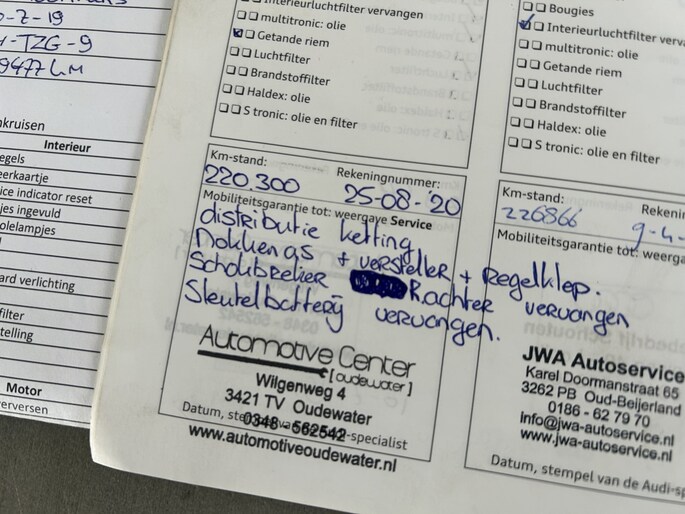 -7-19
-TZG-9
9477 km
nkruisen
Interieur
egels
eerkaartje
ice indicator reset
jes ingevuld
olelampjes
ard verlichting
filter
telling
Motor
verversen
Interieurluchtfilter vervangen
multitronic: olie
Getande riem
Luchtfilter
Brandstoffilter
Haldex: olie
S tronic: olie en filter
Km-stand:
Rekeningnummer:
220.300
25-08-'20
Mobiliteitsgarantie tot: weergave Service
distributie ketting
Nokkenas + versteller + Regelklep.
Schokbreker R.achter vervangen
Sleutelbatterij vervangen.
Automotive Center
[oudewater]
Wilgenweg 4
3421 TV Oudewater
0348 - 562542
Datum, stempel van -specialist
www.automotiveoudewater.nl
Bougies
Interieurluchtfilter verva
multitronic: olie
Getande riem
Luchtfilter
Brandstoffilter
Haldex: olie
S tronic: olie en filter
Km-stand:
Rekenin
226866
9-4-
Mobiliteitsgarantie tot: weerga
JWA Autoservice
Karel Doormanstraat 65
3262 PB Oud-Beijerland
0186 - 62 79 70
info@jwa-autoservice.nl
www.jwa-autoservice.nl
Datum, stempel van de Audi-sp